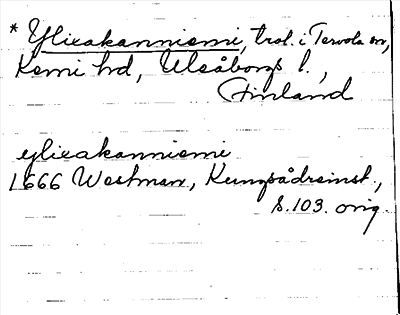 * Ylieakanniemi, trol. i Tervola sn,
Kemi hd, Uleåborgs l.,
Finland
ylieakanniemi
1666 Westman, Kungsådreinst.,
s. 103. orig.